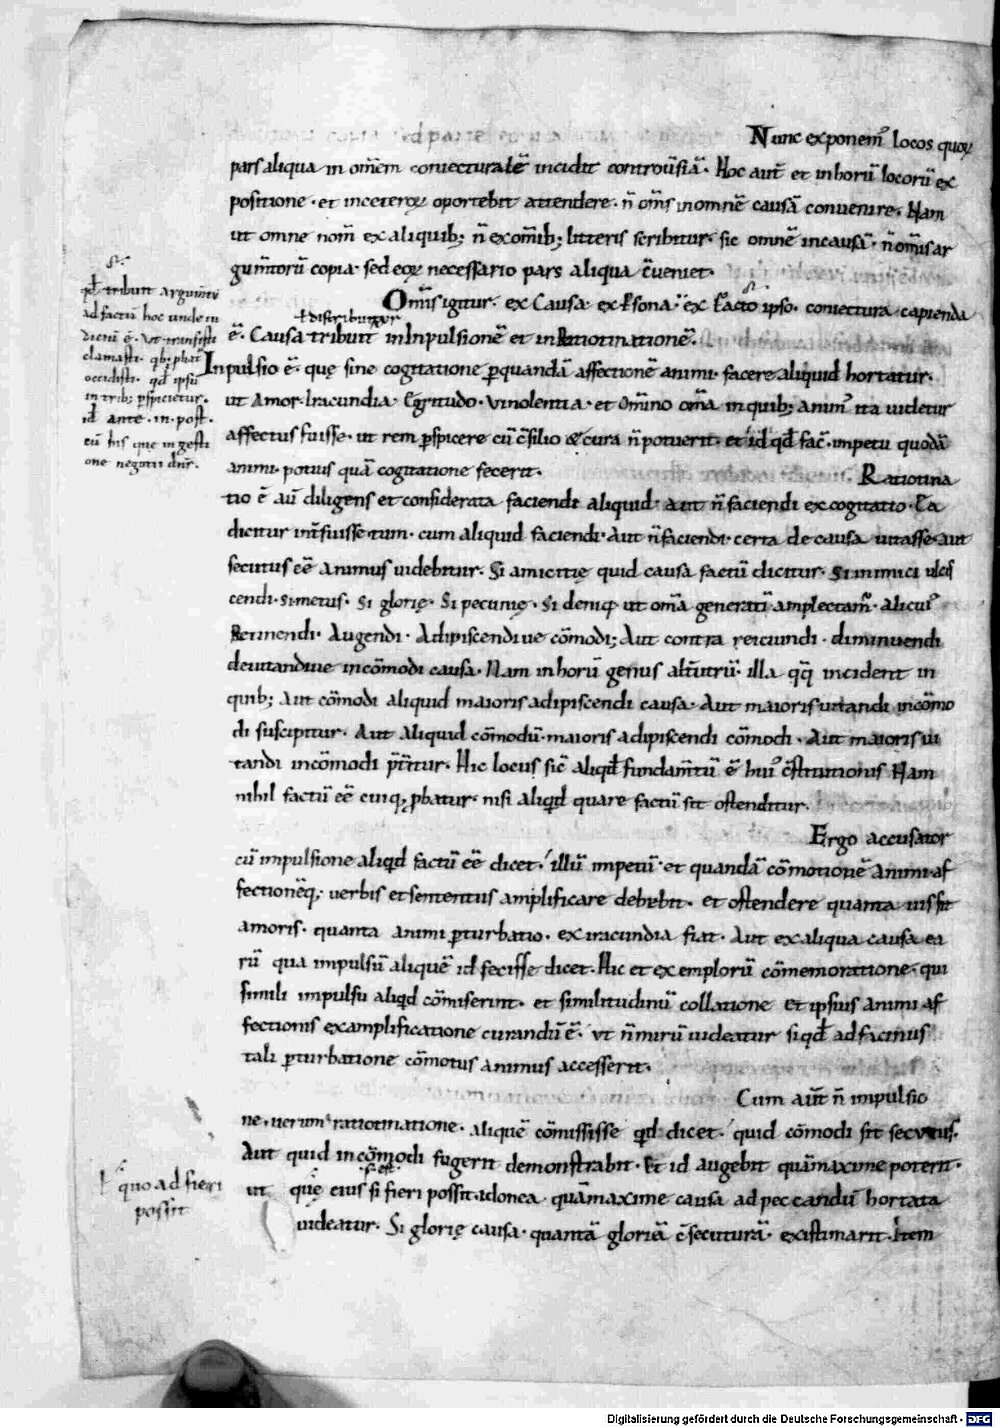 Nunc exponem᷒ locos quoꝝ
pars aliqua in om̄em coniecturalē incidit controu͛siā. Hoc aut̄ et in horū locorū ex
positione. et in ceteroꝝ oportebit attendere. n̄ om̄s in omnē causā conuenire. Nam
ut omne nom̄ ex aliquib; n̄ ex om̄ib; litteris scribitur. sic omnē in causā. n̄ om̄is ar
gum̄torū copia. sed eoꝝ necessario pars aliqua c̄ueniet.
Om̄s igitur. ex Causa. ex ꝑsona. ex facto ipso. coniectura capienda
ł distribuitur
ē. Causa tribuit᷒ in Inpulsionē et in Ratiotinationē.
Inpulsio ē. quę sine cogitatione ꝑ quandā affectionē animi. facere aliquid hortatur.
ut Amor. Iracundia. Egritudo. Vinolentia. et Om̄ino om̄a in quib; anim᷒ ita uidetur
affectus fuisse. ut rem ꝑspicere cū c̄silio & cura n̄ potuerit. et id qđ fac̄. impetu quodā
animi. potius quā cogitatione fecerit. Ratiotina
tio ē aū diligens et considerata faciendi aliquid aut n̄ faciendi excogitatio. Ea
dicitur int̄fuisse tum. cum aliquid faciendi. Aut n̄ faciendi. certa de causa uitasse aut
secutus eē animus uidebitur. Si amicitię quid causa factū dicitur. Si inimici ulcis
cendi. Si metus. Si glorię. Si pecunię. Si deniq; ut om̄a generati amplectam᷒. alicui᷒
Retinendi. Augendi. Adipiscendi ue cōmodi; Aut contra reiciundi. diminuendi
deuitandiue incōmodi causa. Nam in horū genus alt̄utrū. illa qq̄ incident in
quib; Aut cōmodi aliquid maioris adipiscendi causa. Aut maioris uitandi incōmo
di suscipitur. Aut Aliquid cōmodū. maioris adipiscendi cōmodi. Aut maioris ui
tandi incōmodi p̄t̄itur. Hic locus sic̄ aliqđ fundam̄tū ē hui᷒ c̄stitutionis Nam
nihil factū eē cuiq; ꝓbatur. nisi aliqđ quare factū sit ostenditur.
Ergo accusator
cū impulsione aliqđ factū eē dicet. illū impetū. et quandā cōmotionē animi. af
fectionēq; uerbis et sententiis amplificare debebit. et ostendere quanta uis sit
amoris. quanta animi ꝑturbatio. ex iracundia fiat. Aut ex aliqua causa ea
rū qua impulsū aliquē id fecisse dicet. Hic et exemplorū cōmemoratione. qui
simili impulsu aliqđ cōmiserint. et similitudinū collatione et ipsius animi af
fectionis ex amplificatione curandū ē. ut n̄ mirū uideatur si qđ ad facinus
tali ꝑturbatione cōmotus animus accesserit.
Cum aut̄ n̄ impulsio
ne. uerum ratiotinatione. aliquē cōmisisse qđ dicet. quid cōmodi sit secutus.
Aut quid incōmodi fugerit demonstrabit. Et id augebit quā maxime poterit.
ut quę eius si fieri possit. idonea quā maxime causa ad peccandū hortata
uideatur. Si glorię causa. quantā gloriā c̄secuturā. existimarit. Item
qđ tribuit argum̄tū
ad factū hoc unde in
diciū ē. Ut transisti
clamasti.
occidisti. qđ ipsū
in trib; ꝑspicietur.
id ante. in. post.
cū his que in gesti
one negotii dn̄r.
ł quo ad fieri
possit